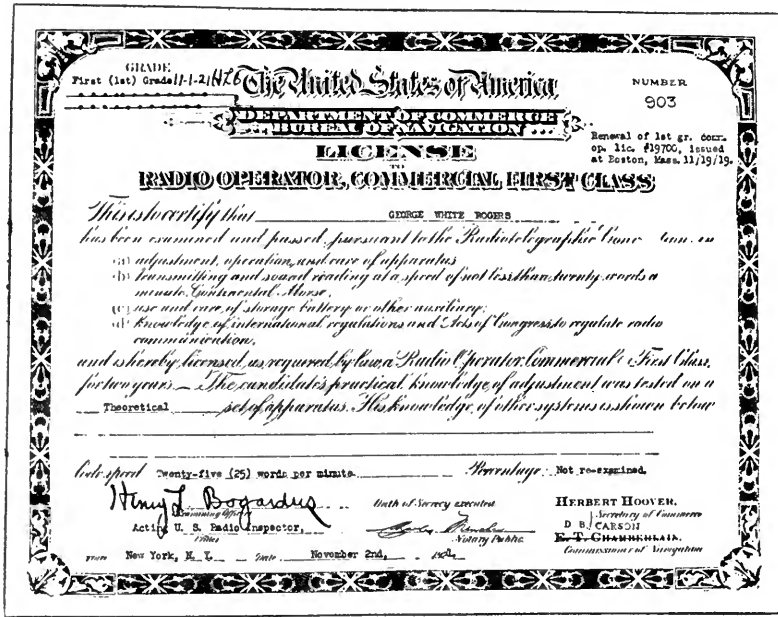 GRADE
First (1st) Grade 11-1-21 HLB
The United States of America
NUMBER
903
DEPARTMENT OF COMMERCE
BUREAU OF NAVIGATION
Renewal of 1st gr. com.
op. lic. #19700, issued
at Boston, Mass. 11/19/19.
LICENSE
TO
RADIO OPERATOR, COMMERCIAL FIRST CLASS
This is to certify that GEORGE WHITE ROGERS
has been examined and passed, pursuant to the Radiotelegraphic in
(a) adjustment, operation, and care of apparatus
(b) transmitting and sound reading at a speed of not less than twenty words a
minute, Continental Morse,
(c) use and care of storage battery or other auxiliary;
(d) knowledge of international regulations and Acts of Congress to regulate radio
communication,
and is hereby licensed, as required by law, a Radio Operator, Commercial First Class,
for two years. The candidate's practical knowledge of adjustment was tested on a
Theoretical set of apparatus. His knowledge of other systems is shown below
Code speed Twenty-five (25) words per minute. Percentage: Not re-examined.
Henry L Bogardus
Examining Officer
Acting U. S. Radio Inspector,
Oath of Secrecy executed
Notary Public
HERBERT HOOVER,
Secretary of Commerce
D B CARSON
E. T. CHAMBERLAIN,
Commissioner of Navigation
New York, N. Y. Date November 2nd,